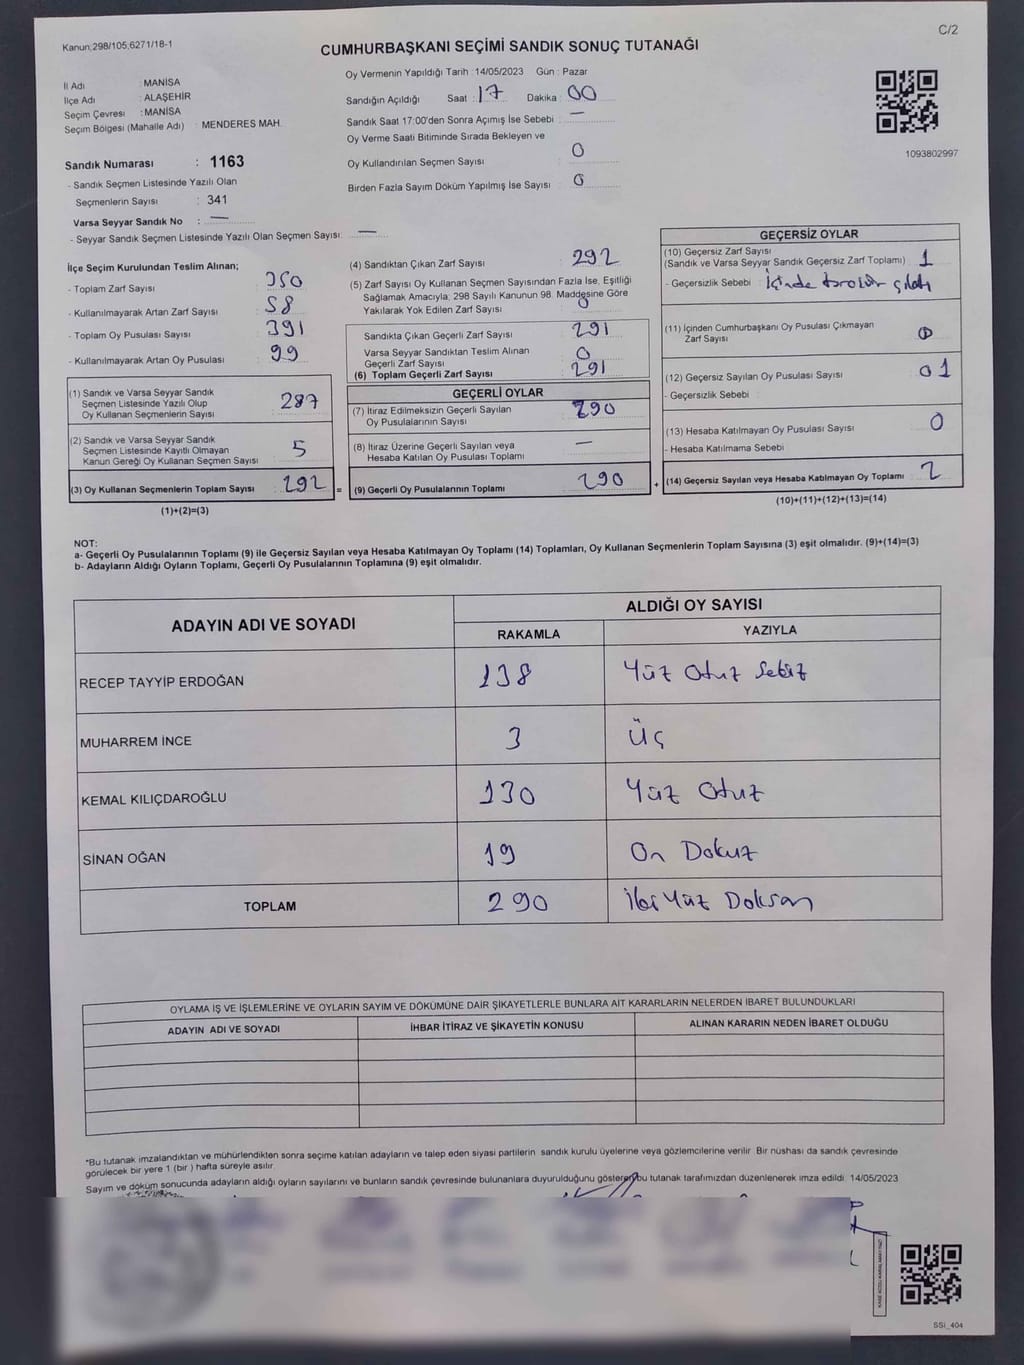 Kanun:298/105,6271/18-1
C/2
CUMHURBAŞKANI SEÇİMİ SANDIK SONUÇ TUTANAĞI
İl Adı : MANİSA
İlçe Adı : ALAŞEHİR
Seçim Çevresi : MANİSA
Seçim Bölgesi (Mahalle Adı) : MENDERES MAH.
Sandık Numarası : 1163
- Sandık Seçmen Listesinde Yazılı Olan
Seçmenlerin Sayısı : 341
Varsa Seyyar Sandık No : —
- Seyyar Sandık Seçmen Listesinde Yazılı Olan Seçmen Sayısı: —
Oy Vermenin Yapıldığı Tarih : 14/05/2023 Gün : Pazar
Sandığın Açıldığı Saat : 17 Dakika : 00
Sandık Saat 17:00'den Sonra Açımış İse Sebebi : —
Oy Verme Saati Bitiminde Sırada Bekleyen ve
Oy Kullandırılan Seçmen Sayısı 0
Birden Fazla Sayım Döküm Yapılmış İse Sayısı : 0
1093802997
İlçe Seçim Kurulundan Teslim Alınan;
- Toplam Zarf Sayısı : 350
- Kullanılmayarak Artan Zarf Sayısı : 58
- Toplam Oy Pusulası Sayısı : 391
- Kullanılmayarak Artan Oy Pusulası : 99
(1) Sandık ve Varsa Seyyar Sandık
Seçmen Listesinde Yazılı Olup
Oy Kullanan Seçmenlerin Sayısı : 287
(2) Sandık ve Varsa Seyyar Sandık
Seçmen Listesinde Kayıtlı Olmayan
Kanun Gereği Oy Kullanan Seçmen Sayısı : 5
(3) Oy Kullanan Seçmenlerin Toplam Sayısı : 292
(1)+(2)=(3)
=
(4) Sandıktan Çıkan Zarf Sayısı : 292
(5) Zarf Sayısı Oy Kullanan Seçmen Sayısından Fazla İse, Eşitliği
Sağlamak Amacıyla; 298 Sayılı Kanunun 98. Maddesine Göre
Yakılarak Yok Edilen Zarf Sayısı : 0
Sandıkta Çıkan Geçerli Zarf Sayısı : 291
Varsa Seyyar Sandıktan Teslim Alınan
Geçerli Zarf Sayısı : 0
(6) Toplam Geçerli Zarf Sayısı : 291
GEÇERLİ OYLAR
(7) İtiraz Edilmeksizin Geçerli Sayılan
Oy Pusulalarının Sayısı : 290
(8) İtiraz Üzerine Geçerli Sayılan veya
Hesaba Katılan Oy Pusulası Toplamı : —
(9) Geçerli Oy Pusulalarının Toplamı : 290
+
GEÇERSİZ OYLAR
(10) Geçersiz Zarf Sayısı
(Sandık ve Varsa Seyyar Sandık Geçersiz Zarf Toplamı) : 1
- Geçersizlik Sebebi : İçinde çıktı
(11) İçinden Cumhurbaşkanı Oy Pusulası Çıkmayan
Zarf Sayısı : 0
(12) Geçersiz Sayılan Oy Pusulası Sayısı : 01
- Geçersizlik Sebebi :
(13) Hesaba Katılmayan Oy Pusulası Sayısı : 0
- Hesaba Katılmama Sebebi
(14) Geçersiz Sayılan veya Hesaba Katılmayan Oy Toplamı : 2
(10)+(11)+(12)+(13)=(14)
NOT:
a- Geçerli Oy Pusulalarının Toplamı (9) ile Geçersiz Sayılan veya Hesaba Katılmayan Oy Toplamı (14) Toplamları, Oy Kullanan Seçmenlerin Toplam Sayısına (3) eşit olmalıdır. (9)+(14)=(3)
b- Adayların Aldığı Oyların Toplamı, Geçerli Oy Pusulalarının Toplamına (9) eşit olmalıdır.
ADAYIN ADI VE SOYADI
ALDIĞI OY SAYISI
RAKAMLA YAZIYLA
RECEP TAYYİP ERDOĞAN 138 Yüz Otuz Sekiz
MUHARREM İNCE 3 Üç
KEMAL KILIÇDAROĞLU 130 Yüz Otuz
SİNAN OĞAN 19 On Dokuz
TOPLAM 290 İki Yüz Doksan
OYLAMA İŞ VE İŞLEMLERİNE VE OYLARIN SAYIM VE DÖKÜMÜNE DAİR ŞİKAYETLERLE BUNLARA AİT KARARLARIN NELERDEN İBARET BULUNDUKLARI
ADAYIN ADI VE SOYADI İHBAR İTİRAZ VE ŞİKAYETİN KONUSU ALINAN KARARIN NEDEN İBARET OLDUĞU
*Bu tutanak imzalandıktan ve mühürlendikten sonra seçime katılan adayların ve talep eden siyasi partilerin sandık kurulu üyelerine veya gözlemcilerine verilir. Bir nüshası da sandık çevresinde
görülecek bir yere 1 (bir ) hafta süreyle asılır.
Sayım ve döküm sonucunda adayların aldığı oyların sayılarını ve bunların sandık çevresinde bulunanlara duyurulduğunu gösterer bu tutanak tarafımızdan düzenlenerek imza edildi. 14/05/2023
SSİ_404